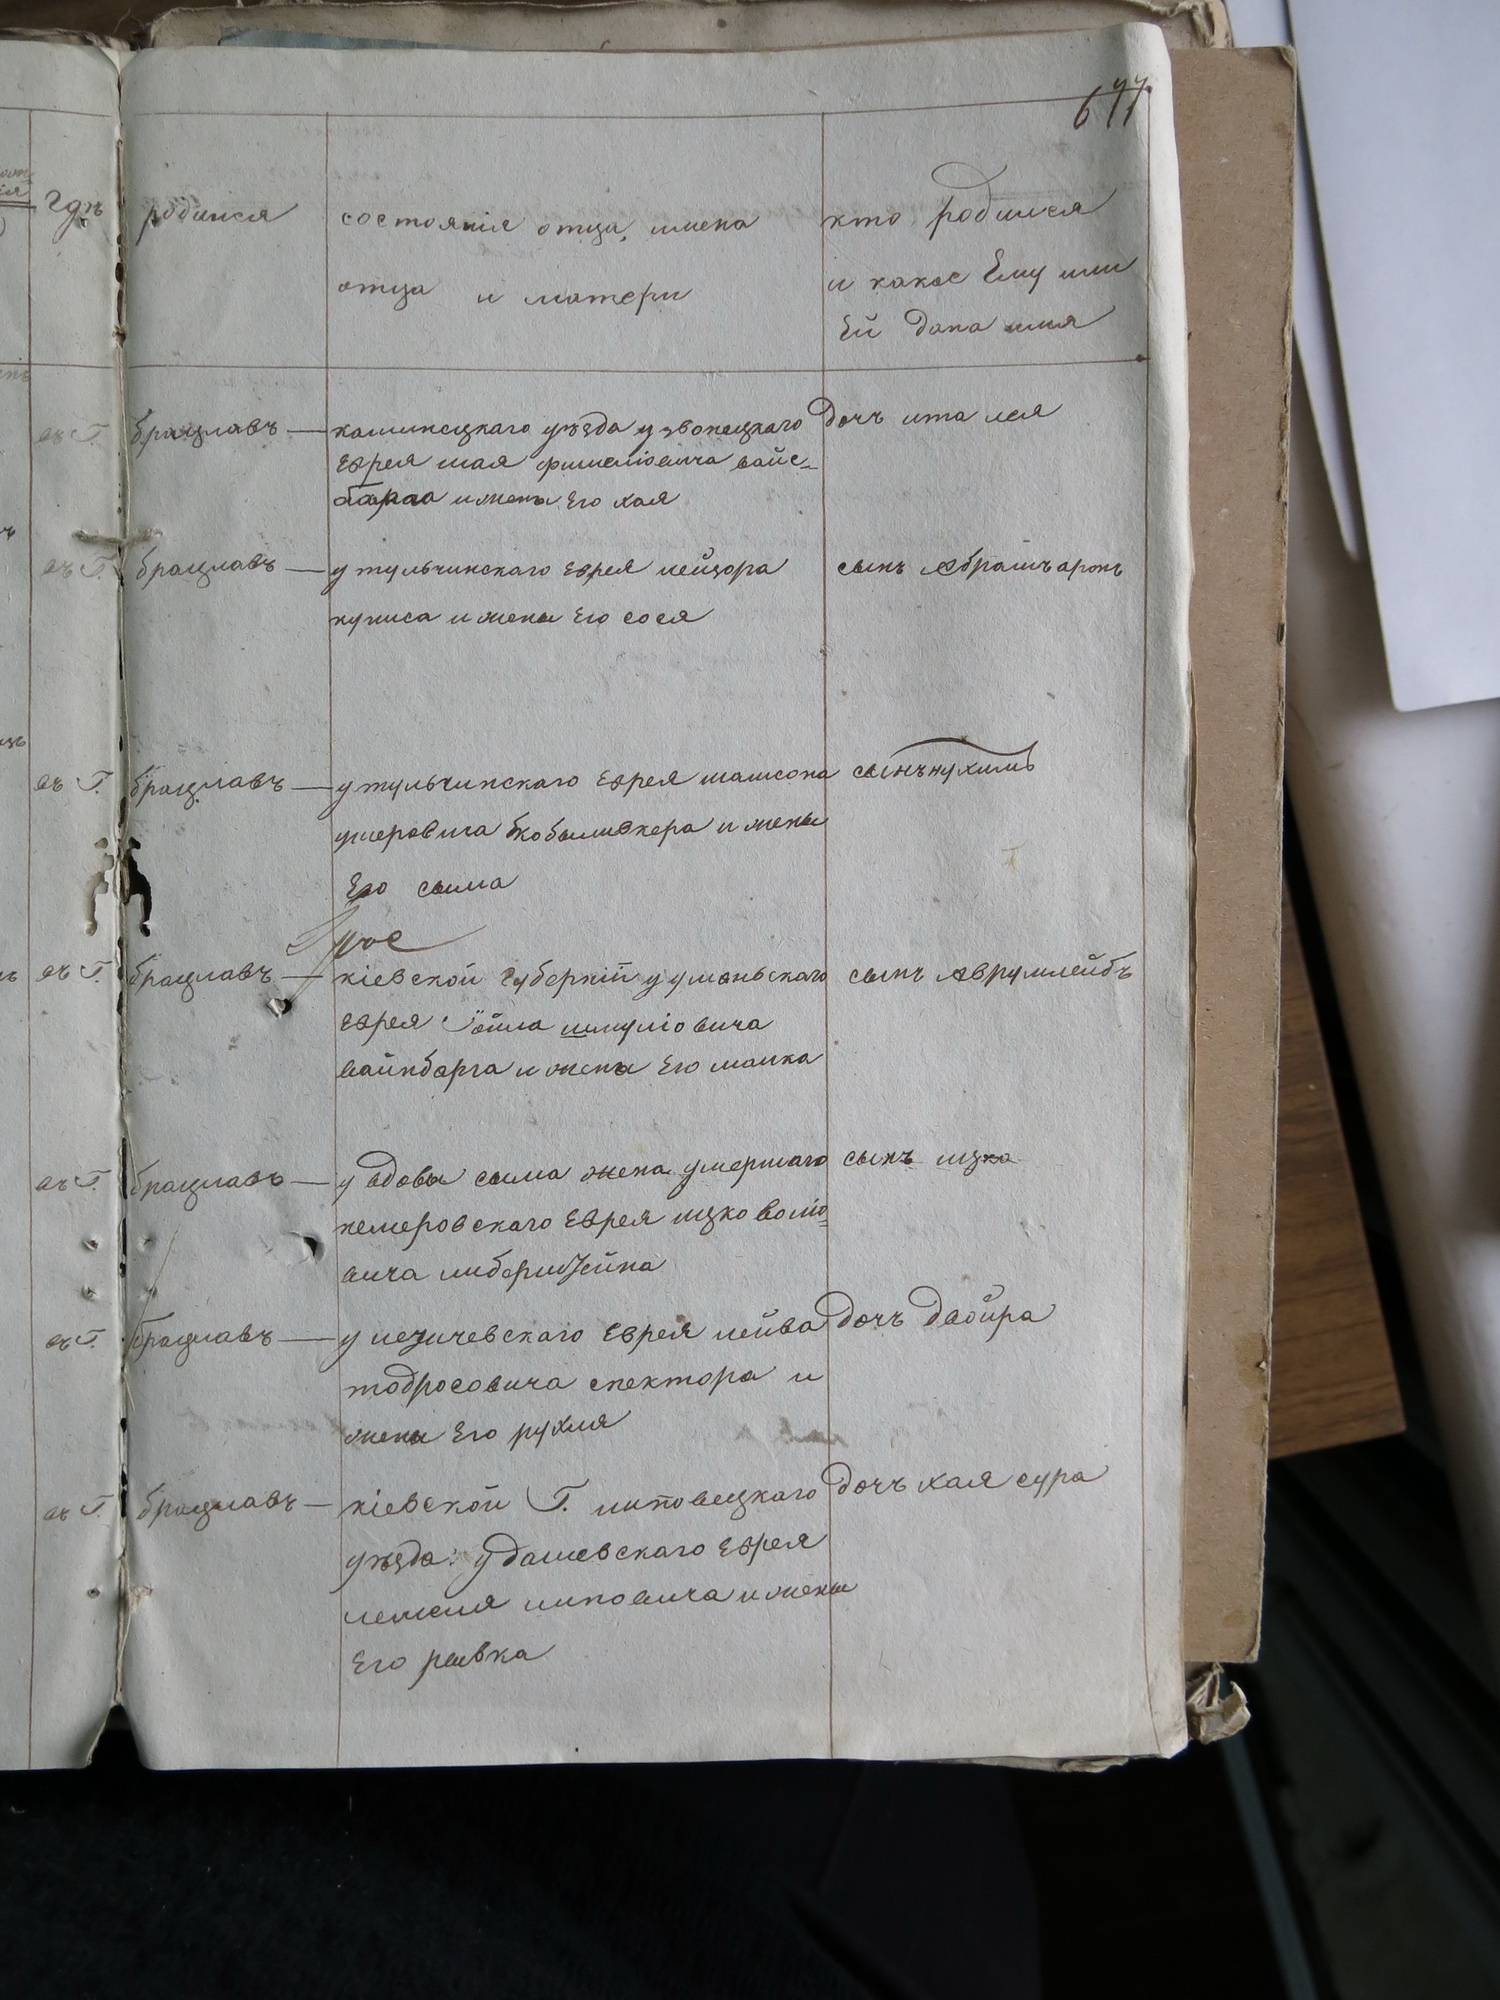 677
Гдѣ родился
состоянія отца, имена
отца и матери
кто родился
и какое Ему или
Ей дана имя
въ Г. брацлавъ — уѣзда
Еврея вайс-
и жены Его хая
дочъ ита лея
въ Г. брацлавъ — у тульчинскаго Еврея лейзора
куписа и жены Его сося
сынъ Абрамъ аронъ
въ Г. брацлавъ — у тульчинскаго Еврея шамсона
кобыливкера и жены
Его сыма
сынъ нухимъ
въ Г. брацлавъ — кіевской Губерніи у уманьскаго
Еврея шмуліовича
вайнбарга и жены Его малка
сынъ Аврумлейбъ
въ Г. брацлавъ — у вдовы сыма жена умершаго
немеровскаго Еврея ицко воліо-
вича
сынъ ицко
въ Г. брацлавъ — у Еврея лейба
тодросовича спектора и
жены Его рухля
дочъ двойра
въ Г. брацлавъ — кіевской Г. липовецкаго
уѣзда: у дашевскаго Еврея
липовича и жены
Его ривка
дочъ хая сура